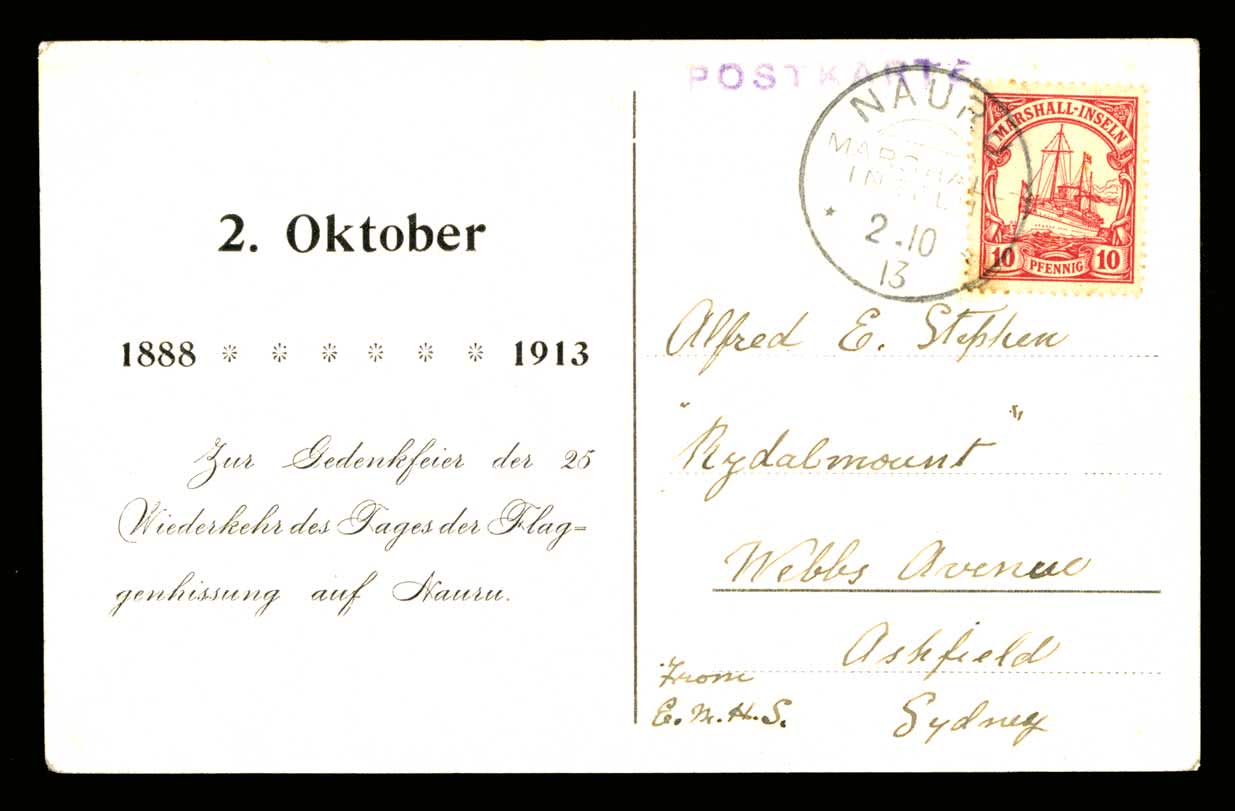 2. Oktober
1888 * * * * * * 1913
Zur Gedenkfeier der 25
Wiederkehr des Tages der Flag=
genhissung auf Nauru.
POSTKARTE
NAURU
MARSHALL-
INSELN
* 2.10 *
13
MARSHALL-INSELN
10 PFENNIG 10
Alfred E. Stephen
"Rydalmount"
Webbs Avenue
Ashfield
Sydney
From
E.M.H.S.